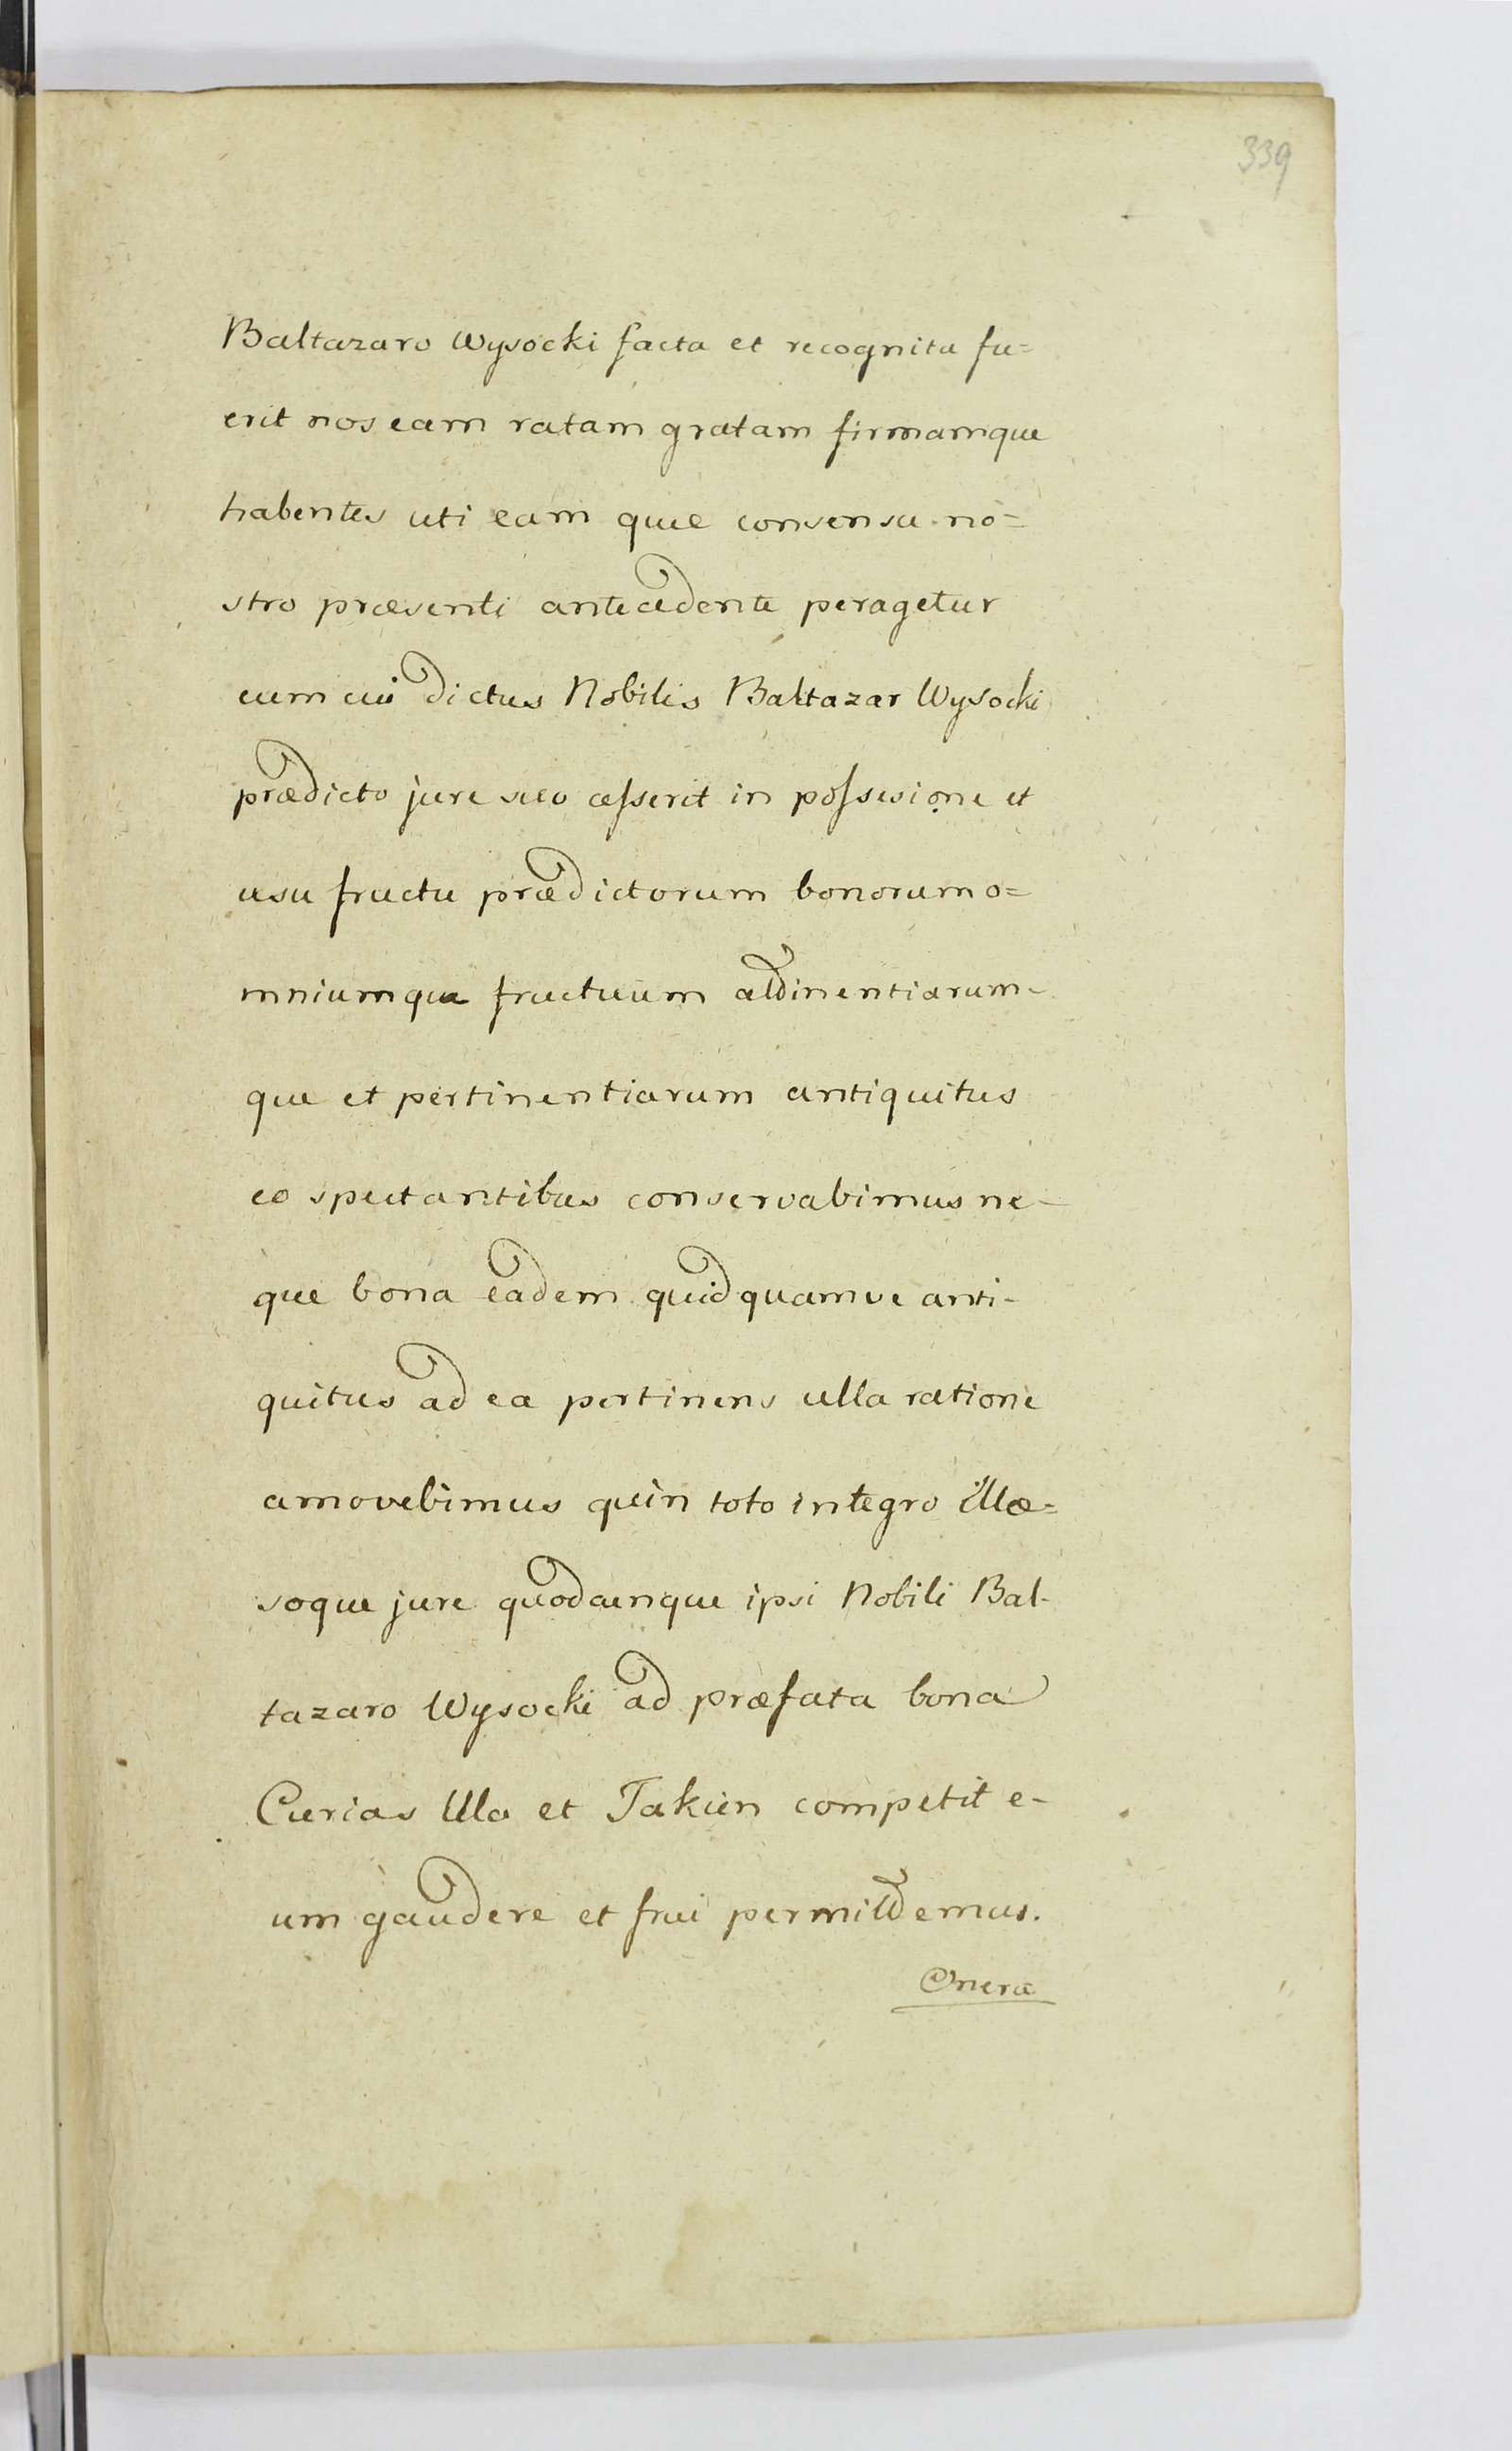 339
Baltazaro Wysocki facta et recognita fu=
erit nos eam ratam gratam firmamque
habentes uti eam quæ consensu no=
stro præsenti antecedente peragetur
eum cui dictus Nobilis Baltazar Wysocki
prædicto jure suo cesserit in possesione et
usu fructu prædictorum bonorum o=
mniumque fructuum attinentiarum-
que et pertinentiarum antiquitus
eo spectantibus conservabimus ne-
que bona eadem quidquamve anti-
quitus ad ea pertinens ulla ratione
amovebimus quin toto integro illæ=
soque jure quodcunque ipsi Nobili Bal-
tazaro Wysocki ad præfata bona
Curias Ula et Takien competit e-
um gaudere et frui permittemus.
Onera